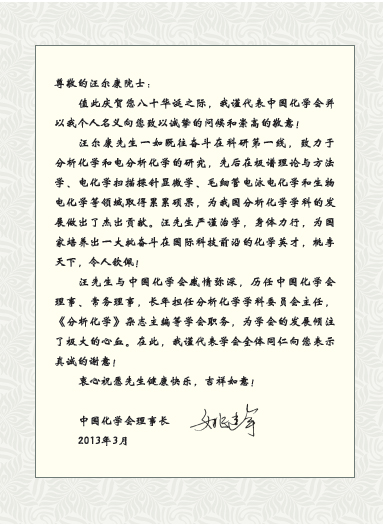 尊敬的汪尔康院士：
值此庆贺您八十华诞之际，我谨代表中国化学会并
以我个人名义向您致以诚挚的问候和崇高的敬意！
汪尔康先生一如既往奋斗在科研第一线，致力于
分析化学和电分析化学的研究，先后在极谱理论与方法
学、电化学扫描探针显微学、毛细管电泳电化学和生物
电化学等领域取得累累硕果，为我国分析化学学科的发
展做出了杰出贡献。汪先生严谨治学，身体力行，为国
家培养出一大批奋斗在国际科技前沿的化学英才，桃李
天下，令人钦佩！
汪先生与中国化学会感情弥深，历任中国化学会
理事、常务理事，长年担任分析化学学科委员会主任，
《分析化学》杂志主编等学会职务，为学会的发展倾注
了极大的心血。在此，我谨代表学会全体同仁向您表示
真诚的谢意！
衷心祝愿先生健康快乐，吉祥如意！
中国化学会理事长
2013年3月